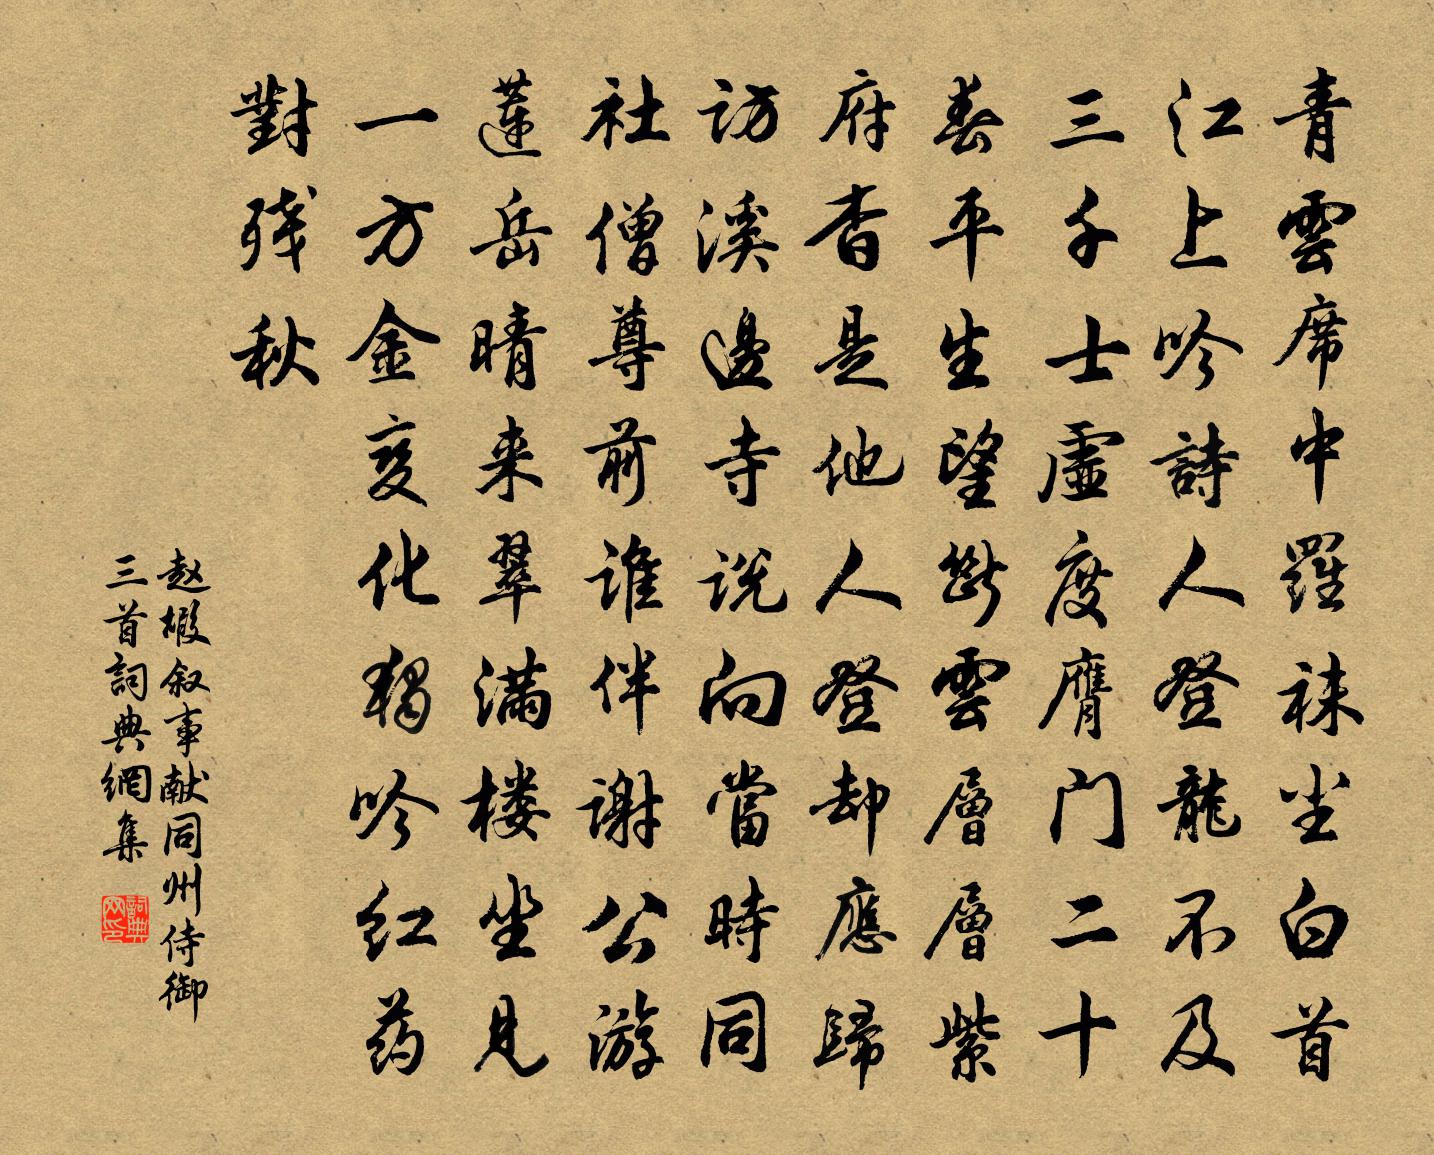 青雲席中羅袜尘白首
江上吟詩人登龍不及
三千士虛度膺门二十
春平生望斷雲層層紫
府杳是他人登却應歸
访溪邊寺说向當時同
社僧尊前谁伴谢公游
蓮岳晴来翠满楼坐見
一方金变化独吟红药
對残秋
赵嘏叙事献同州侍御
三首詞典網集
詞典网印